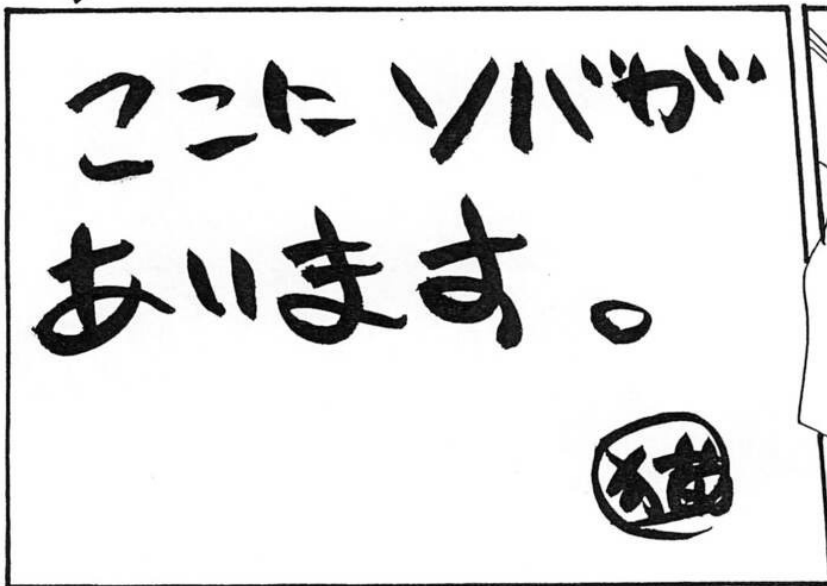 ここにソバが
あります。
猫